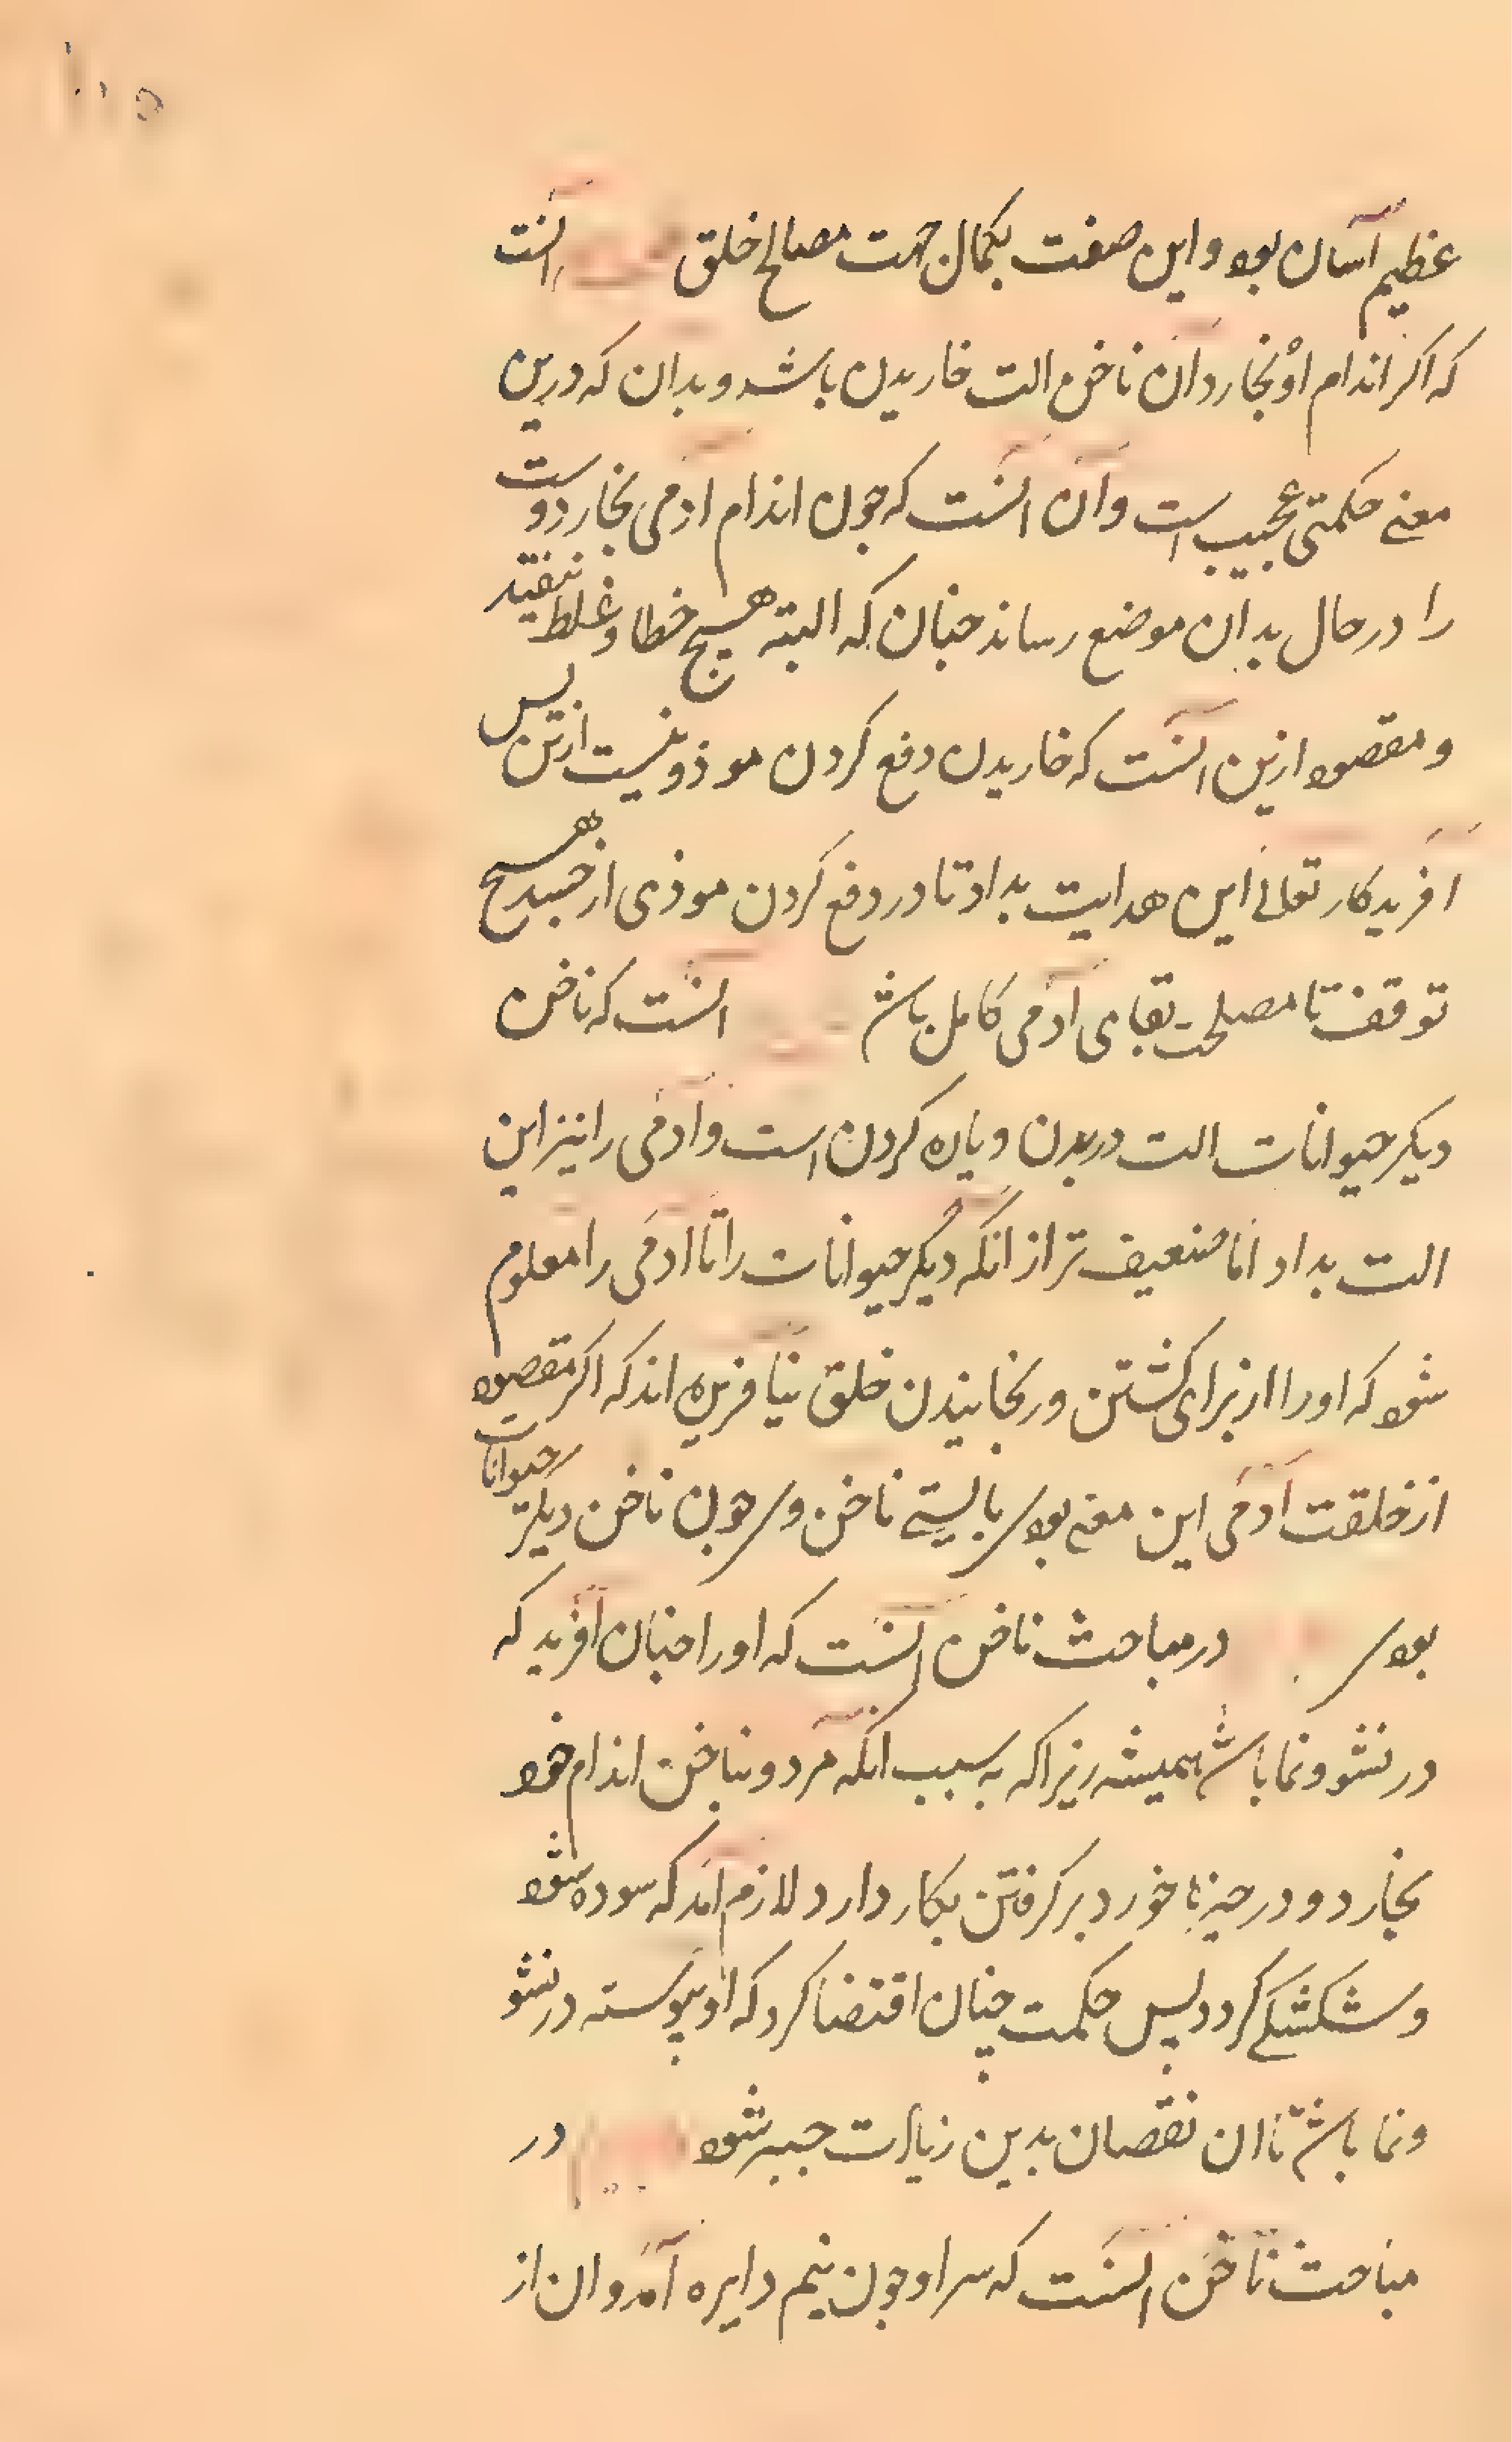 عظیم آسان بود و این صفت بکمال جهت مصالح خلق آنست
که اکر اندام او بخارد آن ناخن الت خاریدن باشد و بدان که درین
معنی حکمتی عجیب است و آن آنست که جون اندام آدمی بخارد دست
را در حال بدان موضع رساند جنان که البته هیچ خطا و غلط نیفتد
و مقصود ازین آنست که خاریدن دفع کردن موذویست از تن پس
آفریدکار تعالی این هدایت بداد تا در دفع کردن موذی از جسد هیچ
توقف تا مصلحت بقای آدمی کامل باشد آنست که ناخن
دیکر حیوانات الت دریدن و پاره کردن است و آدمی را نیز این
الت بداد اما ضعیف تر از انکه دیکر حیوانات را تا آدمی را معلوم
شود که او را از برای کشتن و رنجانیدن خلق نیافریده اند که اکر مقصود
از خلقت آدمی این معنی بودی بایستی ناخن وی جون ناخن دیکر حیوانات
بودی در مباحث ناخن آنست که او را جنان آفرید که
در نشو و نما باشد همیشه زیرا که به سبب انکه مردو بناخن اندام خود
بخارد و در جیزها خورد بر کرفتن بکار دارد لازم آمد که سوده شود
و شکشکی کردد پس حکمت چنان اقتضا کرد که او پیوسته در نشو
و نما باشد تا ان نقصان بدین زیادت جبیر شود در
مباحث ناخن آنست که سر او جون نیم دایره آمد و ان از